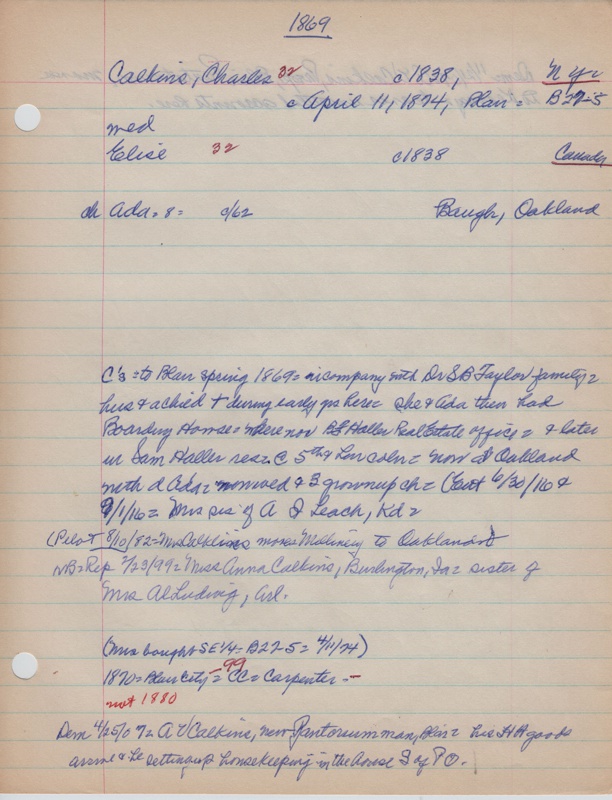 1869
Calkins, Charles 32 c1838, N Y
c April 11, 1874, Blair = B27-5
med
Elise 32 c1838 Canada
ch Ada = 8 = c/62 Baugh, Oakland
C's = to Blair spring 1869 = in company with Dr S B Taylor family =
hus + achied + during early yrs here = she + Ada then had
Boarding House = where now Haller Real Estate office = + later
in Sam Haller res = C 5th + Lincoln = now Oakland
with d Ada = + 3 grownup ch = (Ent 6/30/16 +
9/1/16 = Mrs sis of A J Leach, Kd =
(Pilot 8/10/82 = Mrs Calkins moves Millinery to Oakland
NB = Rep 2/23/99 = Miss Anna Calkins, Burlington, Ia = sister of
Mrs Al Ludwig, Arl.
(Mrs bought SE 1/4 = B27-5 = 4/11/74)
1870 = Blair City = 99 CC = Carpenter =
not 1880
Dem 4/25/07 = A V Calkins, new Pantorium man, Blair = his HH goods
arrive + he setting up housekeeping in the house S of P O.